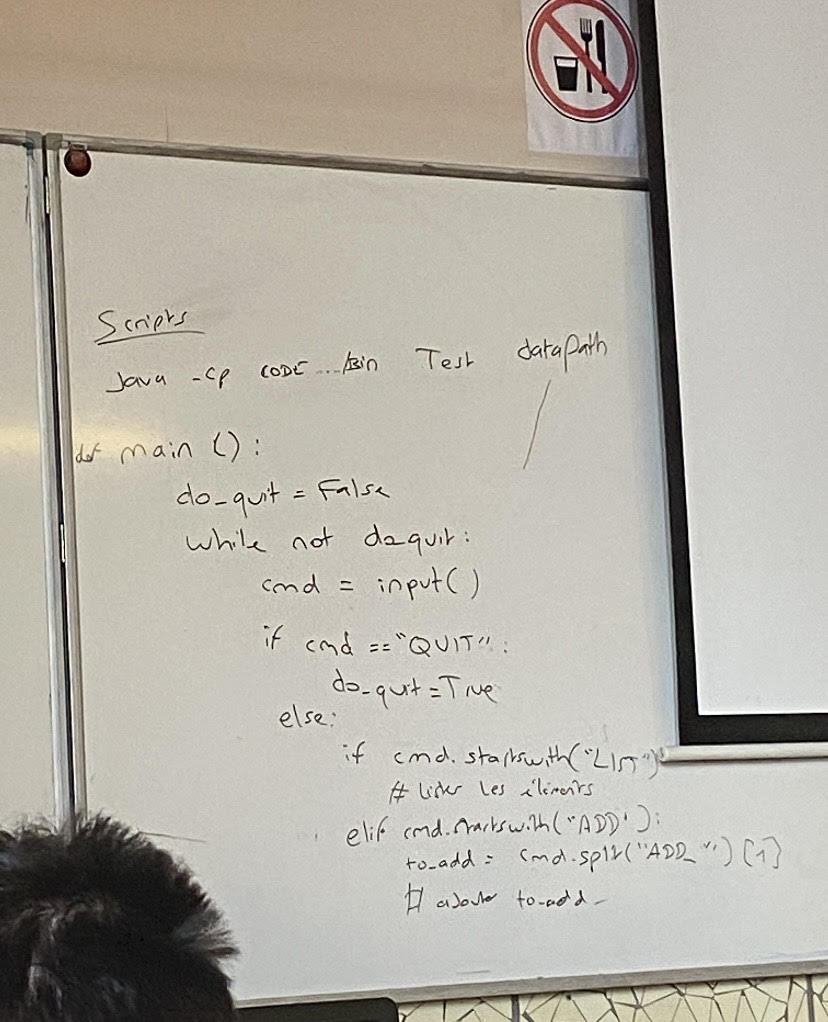 Scripts
Java -cp CODE.../Bin Test dataPath
def main ():
do_quit = False
while not do_quit:
cmd = input()
if cmd == "QUIT":
do_quit = True
else:
if cmd.startswith("LIST")
# lister les éléments
elif cmd.startswith("ADD"):
to_add = cmd.split("ADD_")[1]
# ajouter to_add